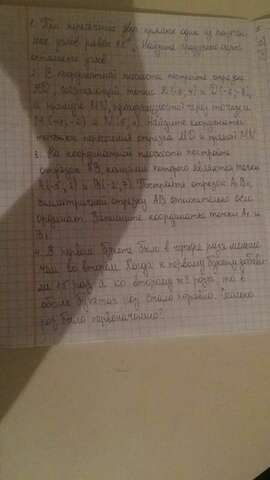 1. При пересечении двух прямых один из получен-
ных углов равен Найдите градусную меру
остальных углов.
2. В координатной плоскости постройте отрезок
соединяющий точки
и прямую MN, проходящую через точки
и N(5, Найдите координаты
точки пересечения отрезка и прямой MN.
3. На координатной плоскости постройте
отрезок AB, концами которого являются точки
A(-5, и B(-2,7). Постройте отрезок A₁B₁,
симметричный отрезку AB относительно оси
ординат. Запишите координаты точки A₁ и
B₁.
4. В первом букете было в четыре раза меньше
чем во втором. Когда к первому букету добави-
ли 15 роз, а ко второму 3 розы, то в
обоих букетах роз стало поровну. Сколько
роз было первоначально?